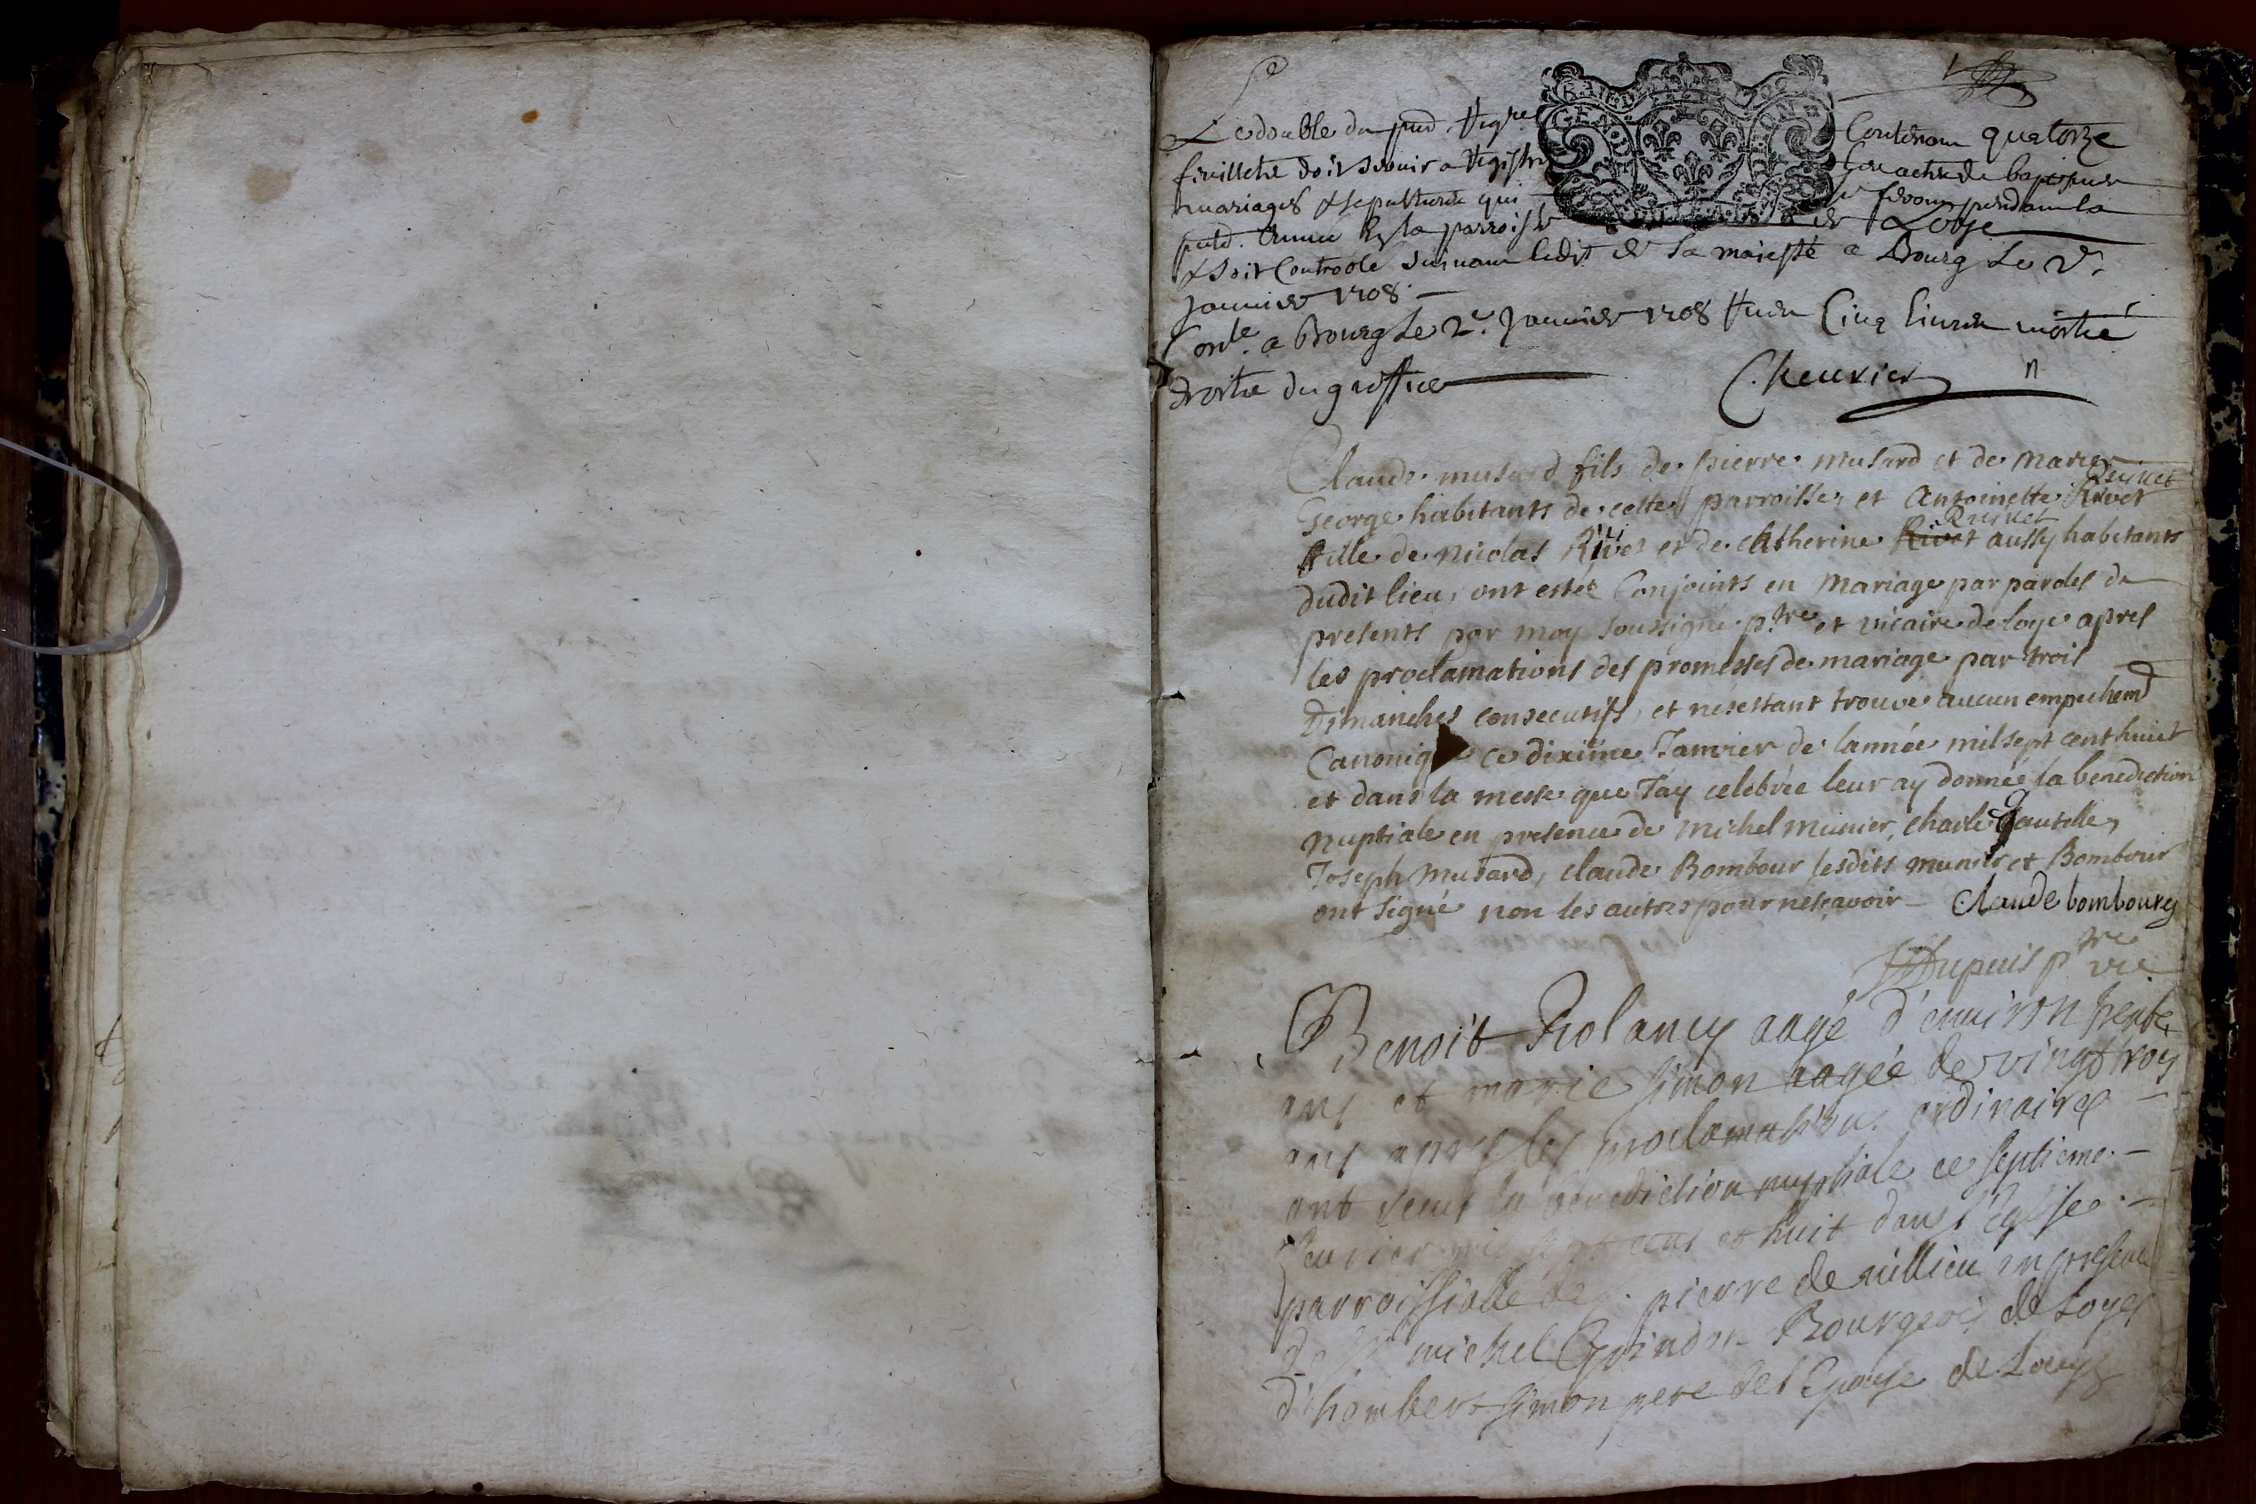 Le double du pnt. Regre Contenant quatorze
feuillets doit servir a Registrer les actes de baptesmes
mariages & sepultures qui se feront pendant la
pnte. Année En la parroisse de Loye
& soit Controolé suivant ledit de sa majesté a Bourg le 2e.
Janvier 1708.
Conle. a Bourg le 2e. Janvier 1708 Receu Cinq livres moitié
droits du greffier Cheurier
Claude musard fils de pierre musard et de marie
Quinet
George habitants de cette parroisse, et Antoinette Rivet
Quinet
fille de nicolas River et de Catherine Rivet aussy habitants
dudit lieu, ont estés Conjoints en mariage par paroles de
presents par moy soussigné ptre et vicaire de loye apres
les proclamations des promesses de mariage par trois
Dimanches consecutifs, et ne sestant trouvé aucun empechemt
Canonique ce dixiime Janvier de lannée mil sept cent huict
et dans la messe que Jay celebrée leur ay donnée la benediction
nuptiale en presence de michel munier, charle Gautelle,
Joseph musard, claude Bombour lesdits munier et Bombour
ont signé non les autres pour ne sçavoir - Claude bombourg
Dupuis ptre vic
Benoit Rolancy aagé d'environ trente
ans et marie simon aagée de vingt troy
ans apres les proclamations ordinaires
ont receus la benediction nuptiale ce septieme
feuvrier mil sept cens et huit dans l'Eglise
parroissialle de S. pierre de villieu en presence
de Sr michel Goindon Bourgeois de Loyes
d'homber simon pere de l'Epouse de Louys